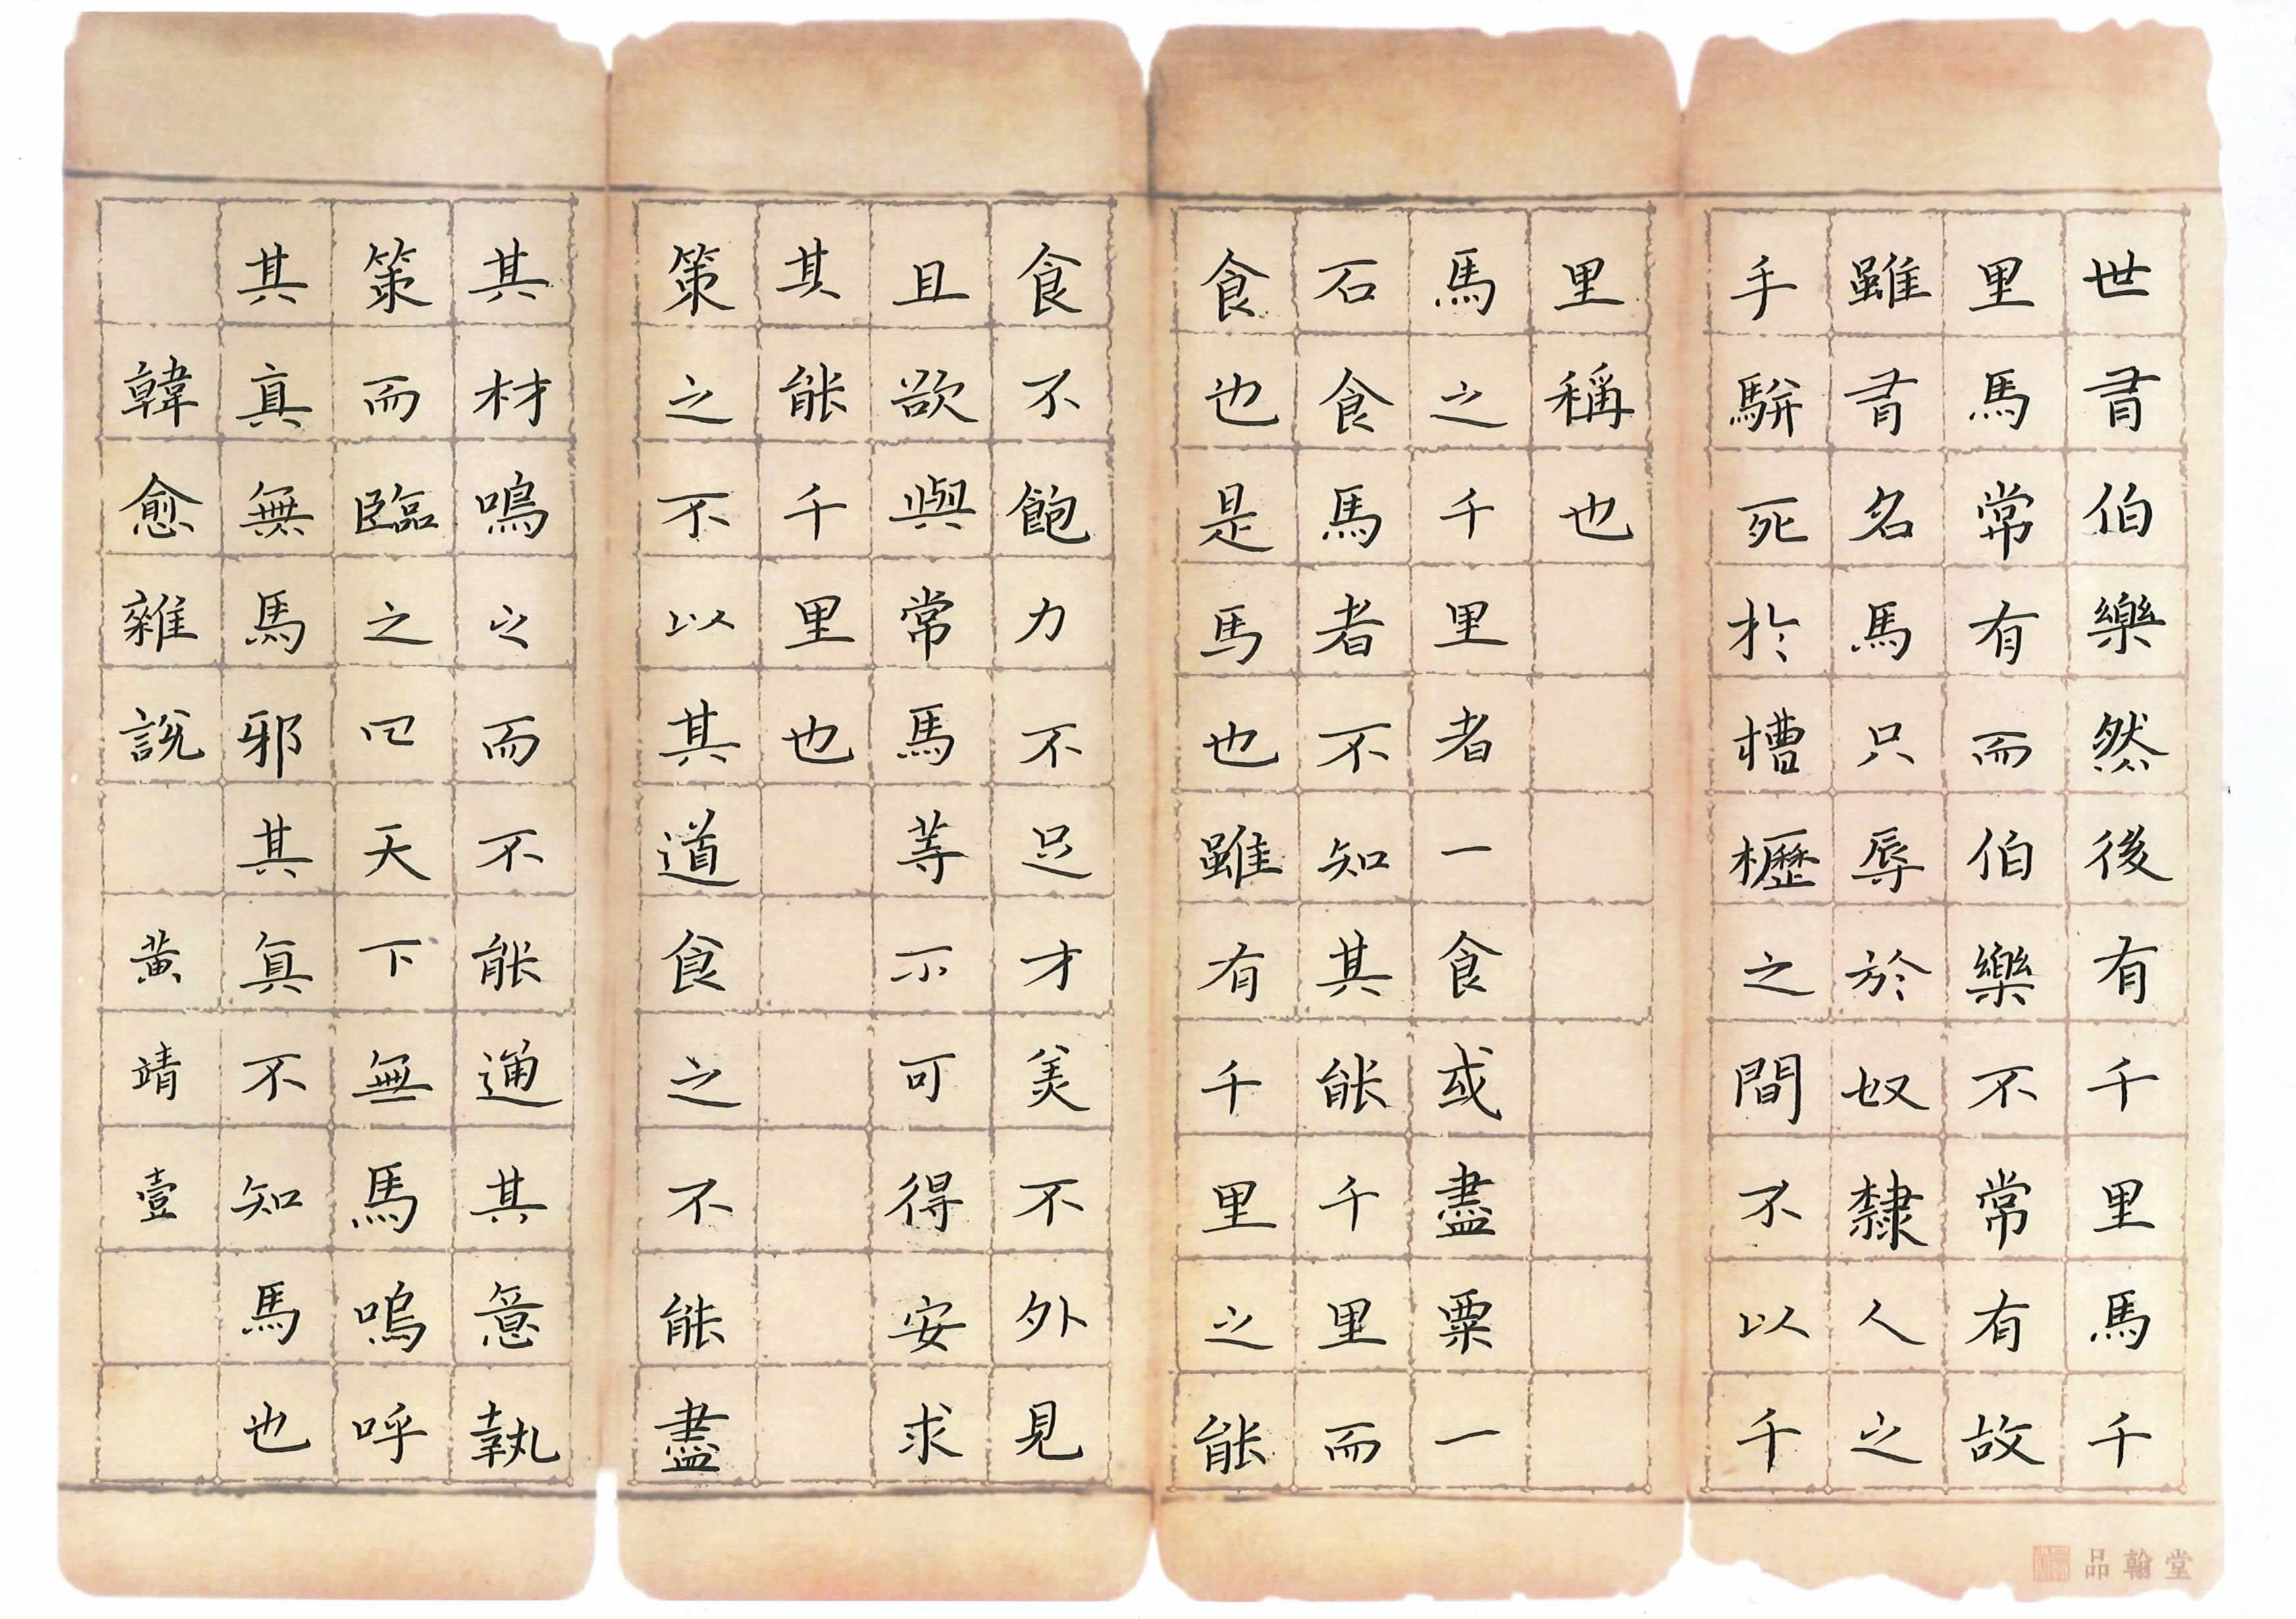 世有伯樂然後有千里馬千
里馬常有而伯樂不常有故
雖有名馬只辱於奴隸人之
手駢死於槽櫪之間不以千
里稱也
馬之千里者一食或盡粟一
石食馬者不知其能千里而
食也是馬也雖有千里之能
食不飽力不足才美不外見
且欲與常馬等不可得安求
其能千里也
策之不以其道食之不能盡
其材鳴之而不能通其意執
策而臨之曰天下無馬嗚呼
其真無馬邪其真不知馬也
韓愈雜說 黃靖壹
品翰堂